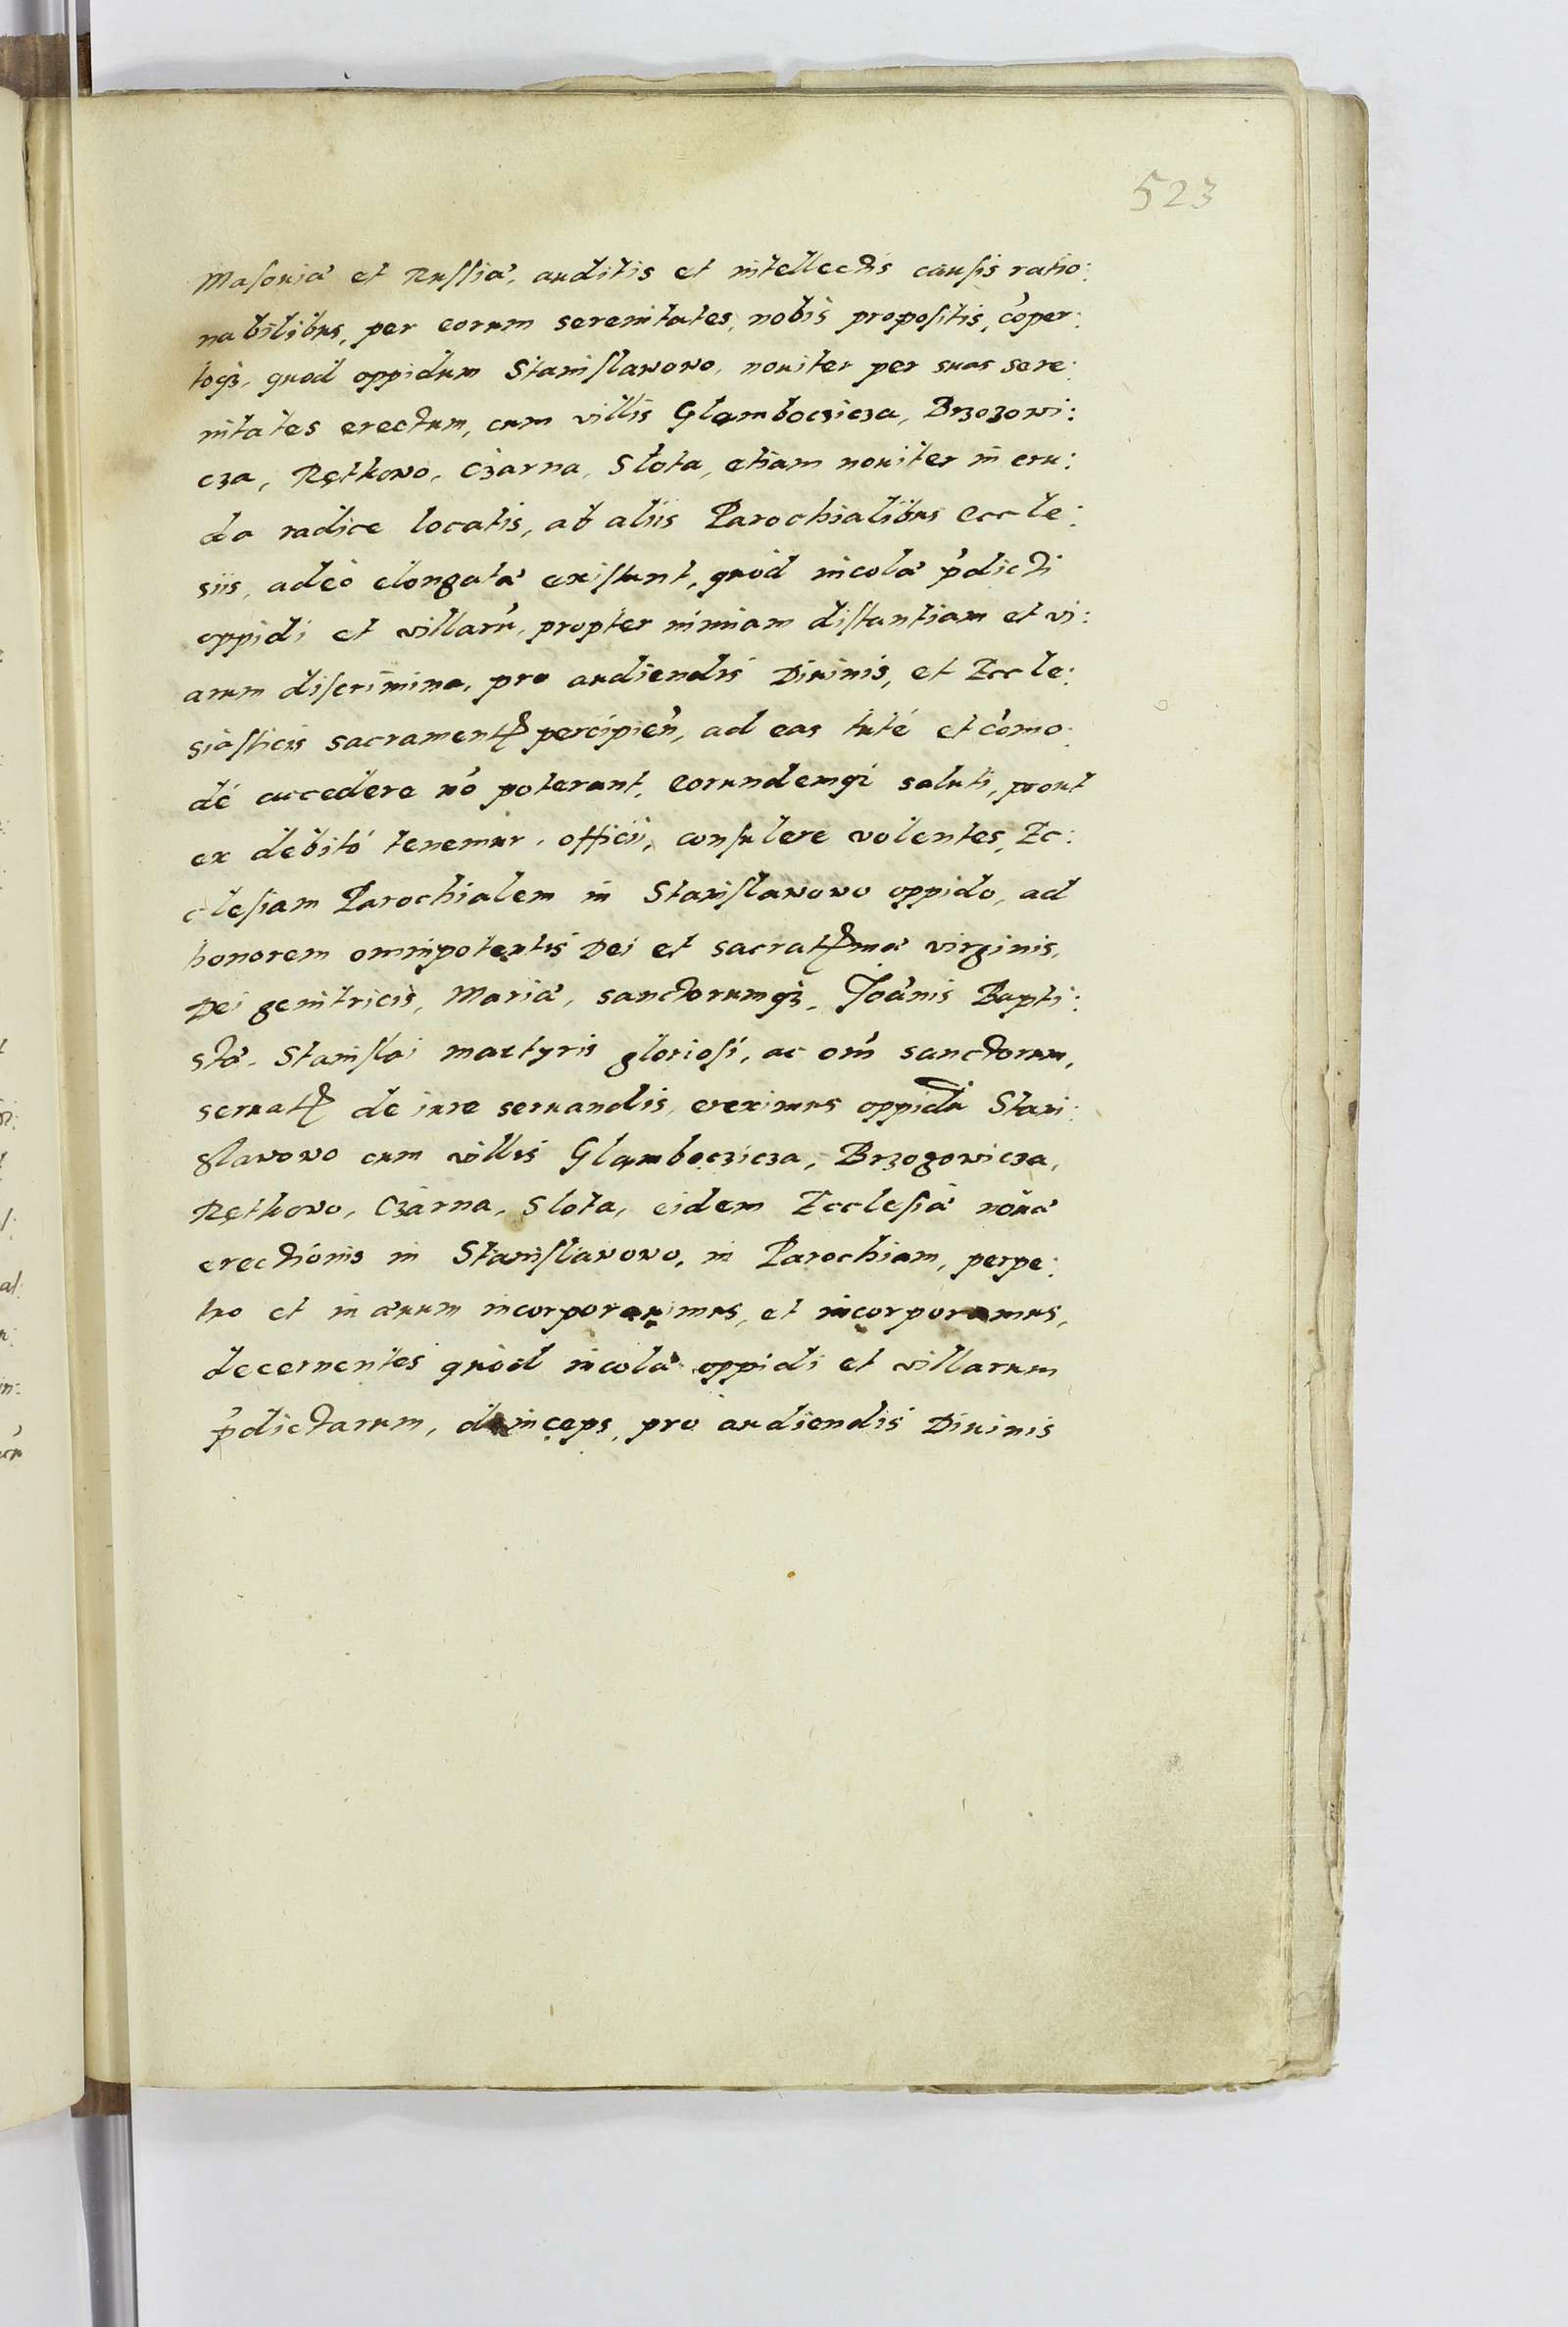 523
Masouiæ et Russiæ, auditis et intellectis causis ratio:
nabilibus, per eorum serenitates, nobis propositis, cóper:
toq3, quod oppidum Stanislawowo, nouiter per suas sere:
nitates erectum, cum villis Glamboczicza, Brzozowi:
cza, Rętkowo, Czarna, Slota, etiam nouiter in cru:
da radice locatis, ab aliis Parochialibus eccle:
siis, adeò elongatæ existunt, quòd incolæ ṕdicti
oppidi et villarú, propter nimiam distantiam et vi:
arum discrimina, pro audiendis Diuinis, et Eccle:
siasticis sacramentꝭ percipień, ad eas tuté et cómo:
dé accedere nó poterant, eorundemq3 saluti, prout
ex debitó tenemur officii, consulere volentes, Ec:
clesiam Parochialem in Stanislawowo oppido, ad
honorem omnipotentis Dei et sacratꝭmæ virginis,
Dei genitricis, Mariæ, sanctorumq3, Joánis Bapti:
stæ, Stanislai martyris gloriosi, ac om̃ sanctorum,
seruatꝭ de iure seruandis, ereximus oppidú Stani:
slawowo cum villis Glamboczicza, Brzozowicza,
Rętkowo, Czarna, Slota, eidem Ecclesiæ nouæ
erectionis in Stanislawowo, in Parochiam, perpe:
tuo et in æuum incorporauimus, et incorporamus,
decernentes quòd incolæ oppidi et villarum
ṕdictarum, deinceps, pro audiendis Diuinis